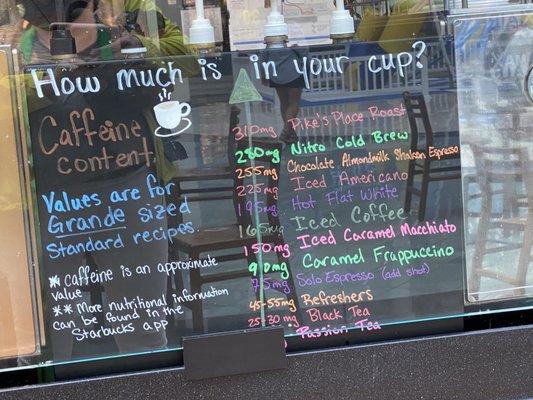 How much is in your cup?
Caffeine
content.
Values are for
Grande sized
Standard recipes.
* caffeine is an approximate
value
** More nutritional information
can be found in the
Starbucks app
310mg Pike's Place Roast
280mg Nitro Cold Brew
255mg Chocolate Almondmilk Shaken Espresso
225mg Iced Americano
195mg Hot Flat White
165mg Iced Coffee
150mg Iced Caramel Macchiato
90mg Caramel Frappuccino
75mg Solo Espresso (add shot)
45-55mg Refreshers
25-30mg Black Tea
Passion Tea